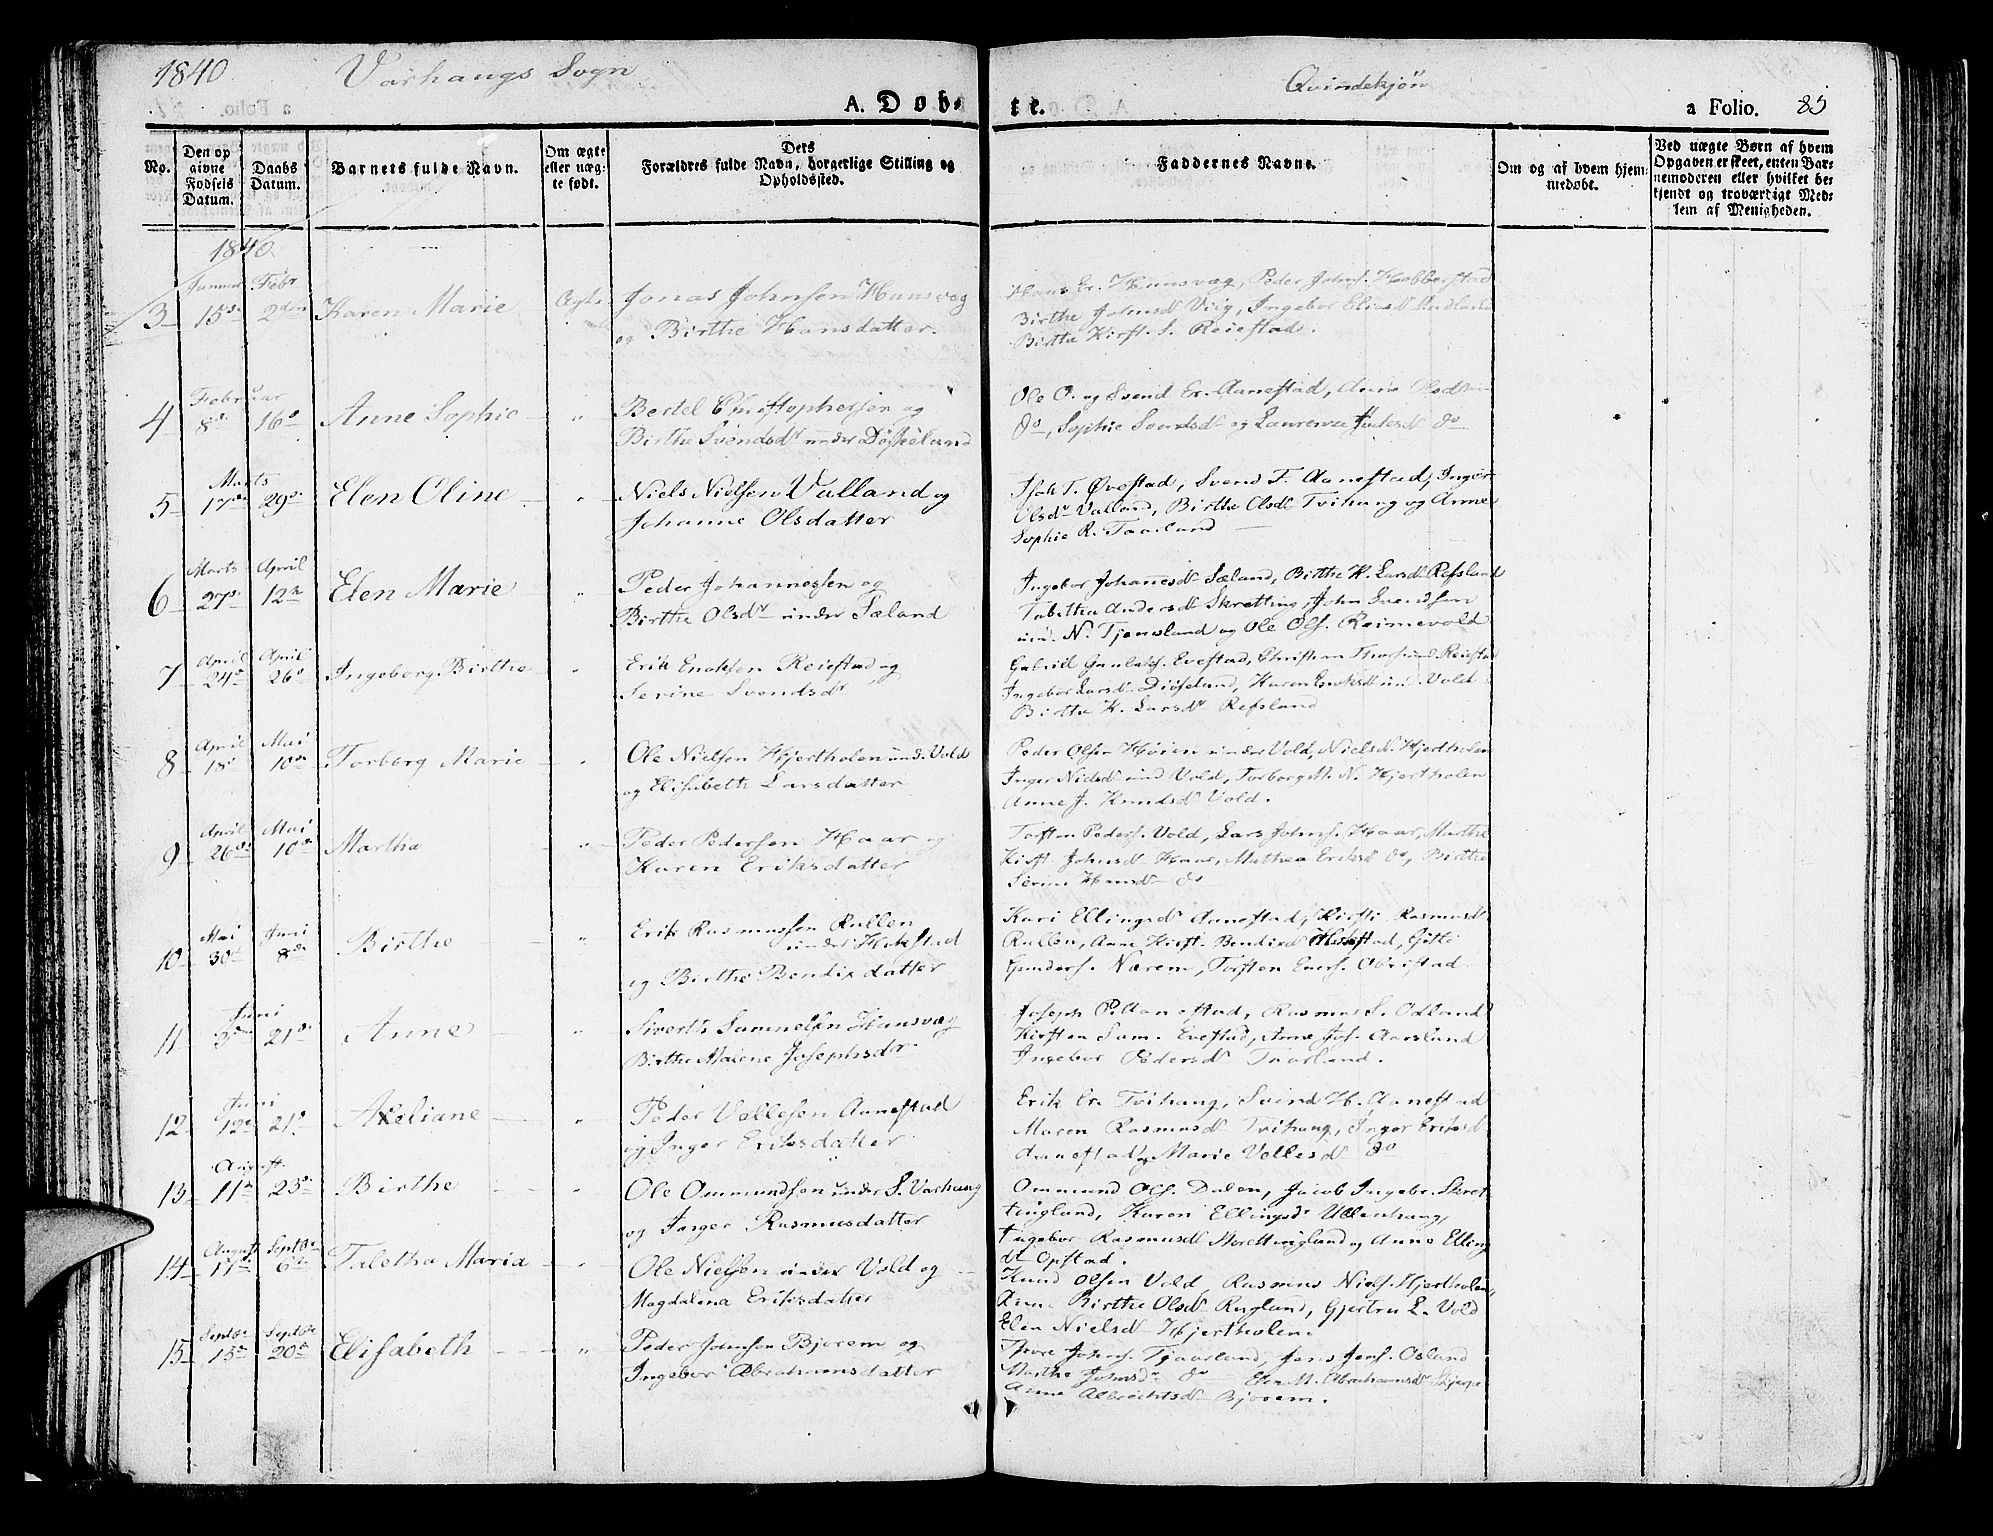 1840 Varhaugs Sogn Qvindekjøn
A. Døbte. a Folio. 85
No.
Den opgivne Fødsels Datum.
Daabs Datum.
Barnets fulde Navn.
Om ægte eller uægte født.
Dets Forældres fulde Navn, borgerlige Stilling og Opholdssted.
Faddernes Navne.
Om og af hvem hjemmedøbt.
Ved uægte Børn af hvem Opgaven er skeet, enten Barnemoderen eller hvilket bekjendt og troværdigt Medlem af Menigheden.
1840.
3 Januar 15de Febr 2den Karen Marie Ægte Jonas Johnsen Hansvæg
og Birthe Hansdatter.
Hans Er. Hansvæg, Peder Johns. Hobberstad
Birthe Johnsdr Viig, Ingebor Eliasdr
Birthe Kirst. S. Reiestad.
4 Februar 8de 16de Anne Sophie " Bertel Christophersen og
Birthe Svendsdr under Døsieland
Ole O. og Svend Er. Aanestad, Anne Olsdr
do, Sophie Svendsdr og Laurenze do
5 Marts 17de 29de Elen Oline " Niels Nielsen Valland og
Johanne Olsdatter
T. Øvestad, Svend F. Aanestad, Inger
Olsdr Valland, Birthe Olsdr Tvihaug og Anne
Sophie R. Taarland
6 Marts 27de April 12te Elen Marie " Peder Johannessen og
Birthe Olsdr under Sæland
Ingebor Johannesdr Sæland, Birthe K. Larsdr Refsland
Tabitha Andersdr Skretting, John Svendsen
und. N. Tjensland og Ole Ols. Reimevold
7 April 24de April 26de Ingeborg Birthe " Erik Enoksen Reiestad og
Serine Svendsdr
Gabriel Evestad, Christen Reiestad
Ingebor Larsdr Døseland, Karen Enoksdr und. Vold
Birthe K. Larsdr Refsland
8 April 18de Mai 10de Torborg Marie " Ole Nielsen Hjertholen und. Vold
og Elisabeth Larsdatter
Peder Olsen Høien under Vold, Niels N. Hjertholen
Inger Nielsdr und Vold, Torborg M. N. Hjertholen
Anne J. Knudsdr Vold.
9 April 26de Mai 10de Martha " Peder Pedersen Haar og
Karen Eriksdatter
Torsten Peders. Vold, Lars Johns. Haar, Marthe
Kirst. Johnsdr Haar, Mathea Eriksdr do, Birthe
Serine Hansdr do
10 Mai 30te Juni 8de Birthe " Erik Rasmussen Rullen
under Hokstad
og Birthe Bendixdatter
Kari Ellingsdr Aanestad, Kirsti Rasmusdr
Rullen, Anne Kirst. Bendixdr Hokstad, Gitle
Gunders. Nærem, Torsten Eners. Obrestad
11 Juni 21de Anne " Siverth Samuelsen Hansvæg
Birthe Malene Josephsdr
Joseph P. Aanestad, Rasmus S. Odland
Kirsten Sam. Evestad, Anne Jos. Aarsland
Ingebor Pedersdr Taarland.
12 Juni 12te 21de Axeliane " Peder Vellesen Aanestad
og Inger Eriksdatter
Erik Er. Tvihaug, Svend H. Aanestad
Maren Rasmusdr Tvihaug, Inger Eriksdr
Aanestad og Marie Vellesdr do
13 August 11te 23de Birthe " Ole Ommundsen under S. Varhaug
og Inger Rasmusdatter
Ommund Ols. Dalen, Jacob Ingebr. Skret
tingland, Karen Ellingsdr Ullenhaug,
Ingebor Rasmusdr Skrettingland og Anne Elling
dr Opstad.
14 August 17de Septbr 6te Taletha Maria " Ole Nielsen under Vold og
Magdalena Eriksdatter
Knud Olsen Vold, Rasmus Niels. Hjertholen,
Anne Birthe Olsdr Rygland, Gjertru L. Vold
Elen Nielsdr Hjertholen.
15 Septbr 15de Septbr 20de Elisabeth " Peder Johnsen Bjorem og
Ingebor Abrahamsdatter
Thore Johns. Tjaarland, Jens Jens. Osland
Marthe Johnsdr do Elen M. Abrahamsdr
Anne Albrechtsdr Bjorem.